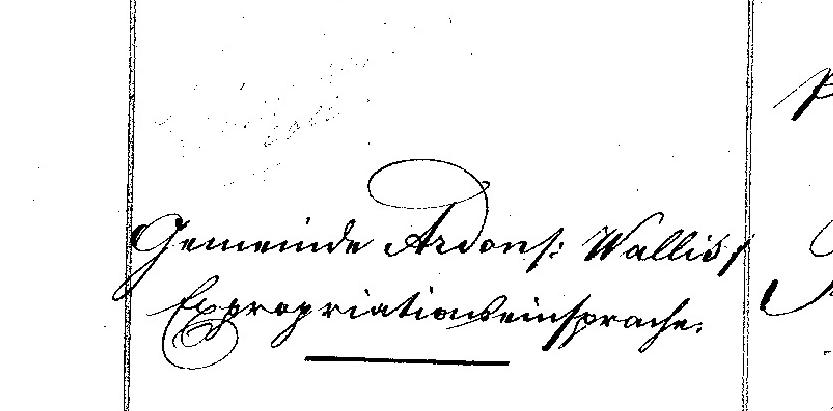 Gemeinde Ardon /: Wallis /
Expropriationseinsprache.